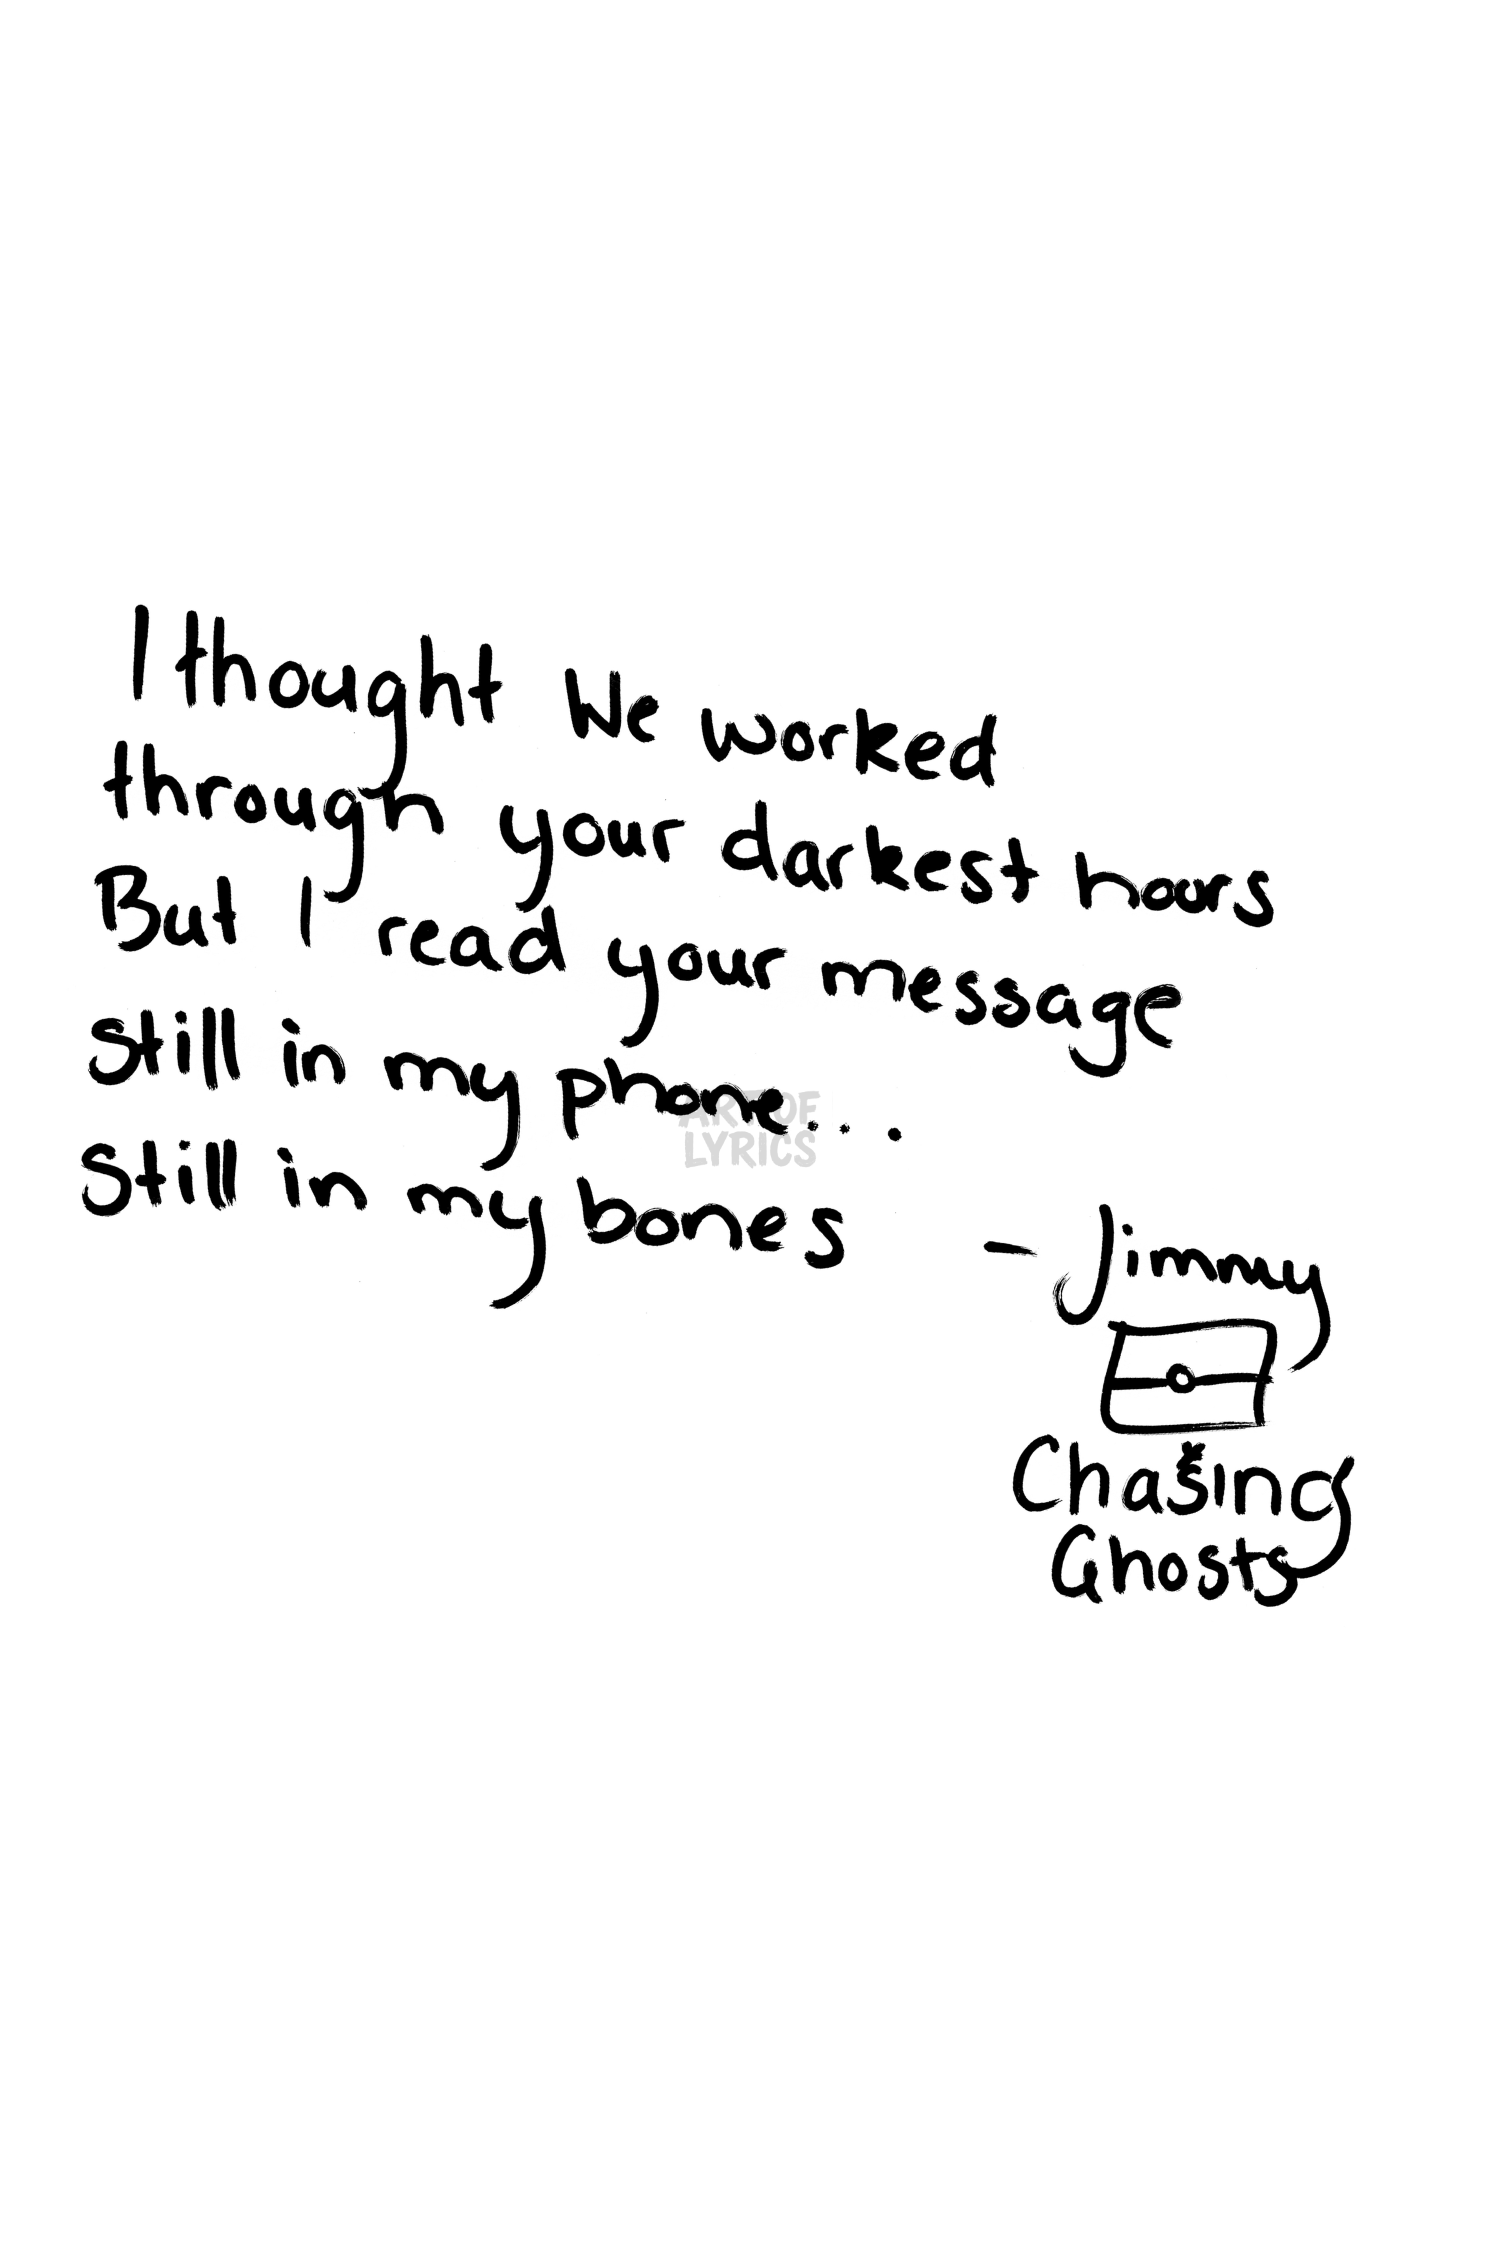 I thought We worked
through your darkest hours
But I read your message
Still in my phone...
ART OF
LYRICS
Still in my bones
- Jimmy
Chasing
Ghosts